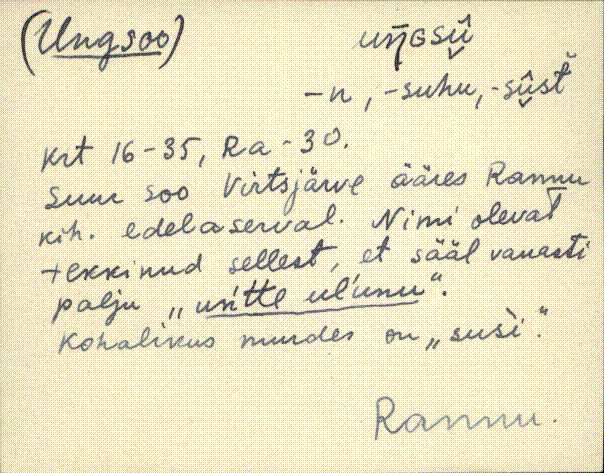 (Ungsoo) uŋɢsū̬
-n, -suhu, -sū̬st̆
Krt 16-35, Ra-30.
Suur soo Virtsjärve ääres Rannu
kih. edelaserval. Nimi olevat
tekkinud sellest, et sääl vanasti
palju „un'tte ul'unu".
Kohalikus murdes on „susi".
Rannu.